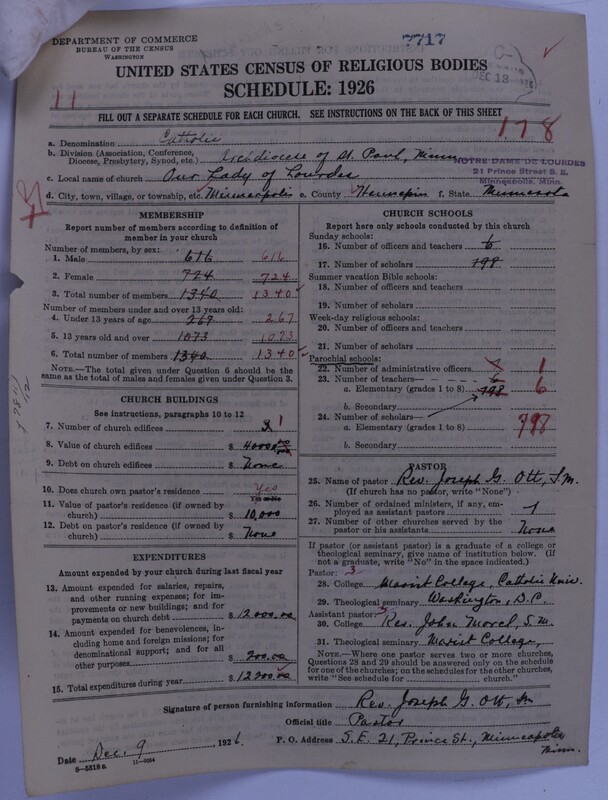 DEPARTMENT OF COMMERCE
BUREAU OF THE CENSUS
WASHINGTON
7717
UNITED STATES CENSUS OF RELIGIOUS BODIES
SCHEDULE: 1926
DEC 13
11
FILL OUT A SEPARATE SCHEDULE FOR EACH CHURCH. SEE INSTRUCTIONS ON THE BACK OF THIS SHEET
178
a. Denomination Catholic
b. Division (Association, Conference, Diocese, Presbytery, Synod, etc.) Archdiocese of St. Paul, Minn
NOTRE DAME DE LOURDES
21 Prince Street S. E.
Minneapolis, Minn.
c. Local name of church Our Lady of Lourdes
d. City, town, village, or township, etc. Minneapolis e. County Hennepin f. State Minnesota
MEMBERSHIP
Report number of members according to definition of
member in your church
Number of members, by sex:
1. Male 616 616
2. Female 724 724
3. Total number of members 1340 1340
Number of members under and over 13 years old:
4. Under 13 years of age 267 267
5. 13 years old and over 1073 1073
6. Total number of members 1340 1340
NOTE.—The total given under Question 6 should be the
same as the total of males and females given under Question 3.
CHURCH BUILDINGS
See instructions, paragraphs 10 to 12
7. Number of church edifices 1
8. Value of church edifices $ 40000
9. Debt on church edifices $ None
10. Does church own pastor's residence Yes
Yes or No
11. Value of pastor's residence (if owned by
church) $ 10,000
12. Debt on pastor's residence (if owned by
church) $ None
EXPENDITURES
Amount expended by your church during last fiscal year
13. Amount expended for salaries, repairs,
and other running expenses; for im-
provements or new buildings; and for
payments on church debt $ 12000.00
14. Amount expended for benevolences, in-
cluding home and foreign missions; for
denominational support; and for all
other purposes 200.00
15. Total expenditures during year $ 12200.00
CHURCH SCHOOLS
Report here only schools conducted by this church
Sunday schools:
16. Number of officers and teachers 6
17. Number of scholars 198
Summer vacation Bible schools:
18. Number of officers and teachers
19. Number of scholars
Week-day religious schools:
20. Number of officers and teachers
21. Number of scholars
Parochial schools:
22. Number of administrative officers 1
23. Number of teachers—
a. Elementary (grades 1 to 8) 198 6
b. Secondary
24. Number of scholars—
a. Elementary (grades 1 to 8) 198
b. Secondary
PASTOR
25. Name of pastor Rev. Joseph G. Ott, S.M.
(If church has no pastor, write "None")
26. Number of ordained ministers, if any, em-
ployed as assistant pastors 1
27. Number of other churches served by the
pastor or his assistants None
If pastor (or assistant pastor) is a graduate of a college or
theological seminary, give name of institution below. (If
not a graduate, write "No" in the space indicated.)
Pastor: 3
28. College Marist College, Catholic Univ.
29. Theological seminary Washington, D.C.
Assistant pastor:
30. College Rev. John Morel, S.M.
31. Theological seminary Marist College,
NOTE.—Where one pastor serves two or more churches,
Questions 28 and 29 should be answered only on the schedule
for one of the churches; on the schedules for the other churches,
write "See schedule for church."
Signature of person furnishing information Rev. Joseph G. Ott, Sm
Official title Pastor
Date Dec. 9 1926 P. O. Address S.E. 21, Prince St., Minneapolis
Minn.
8—5318 a 11—9054